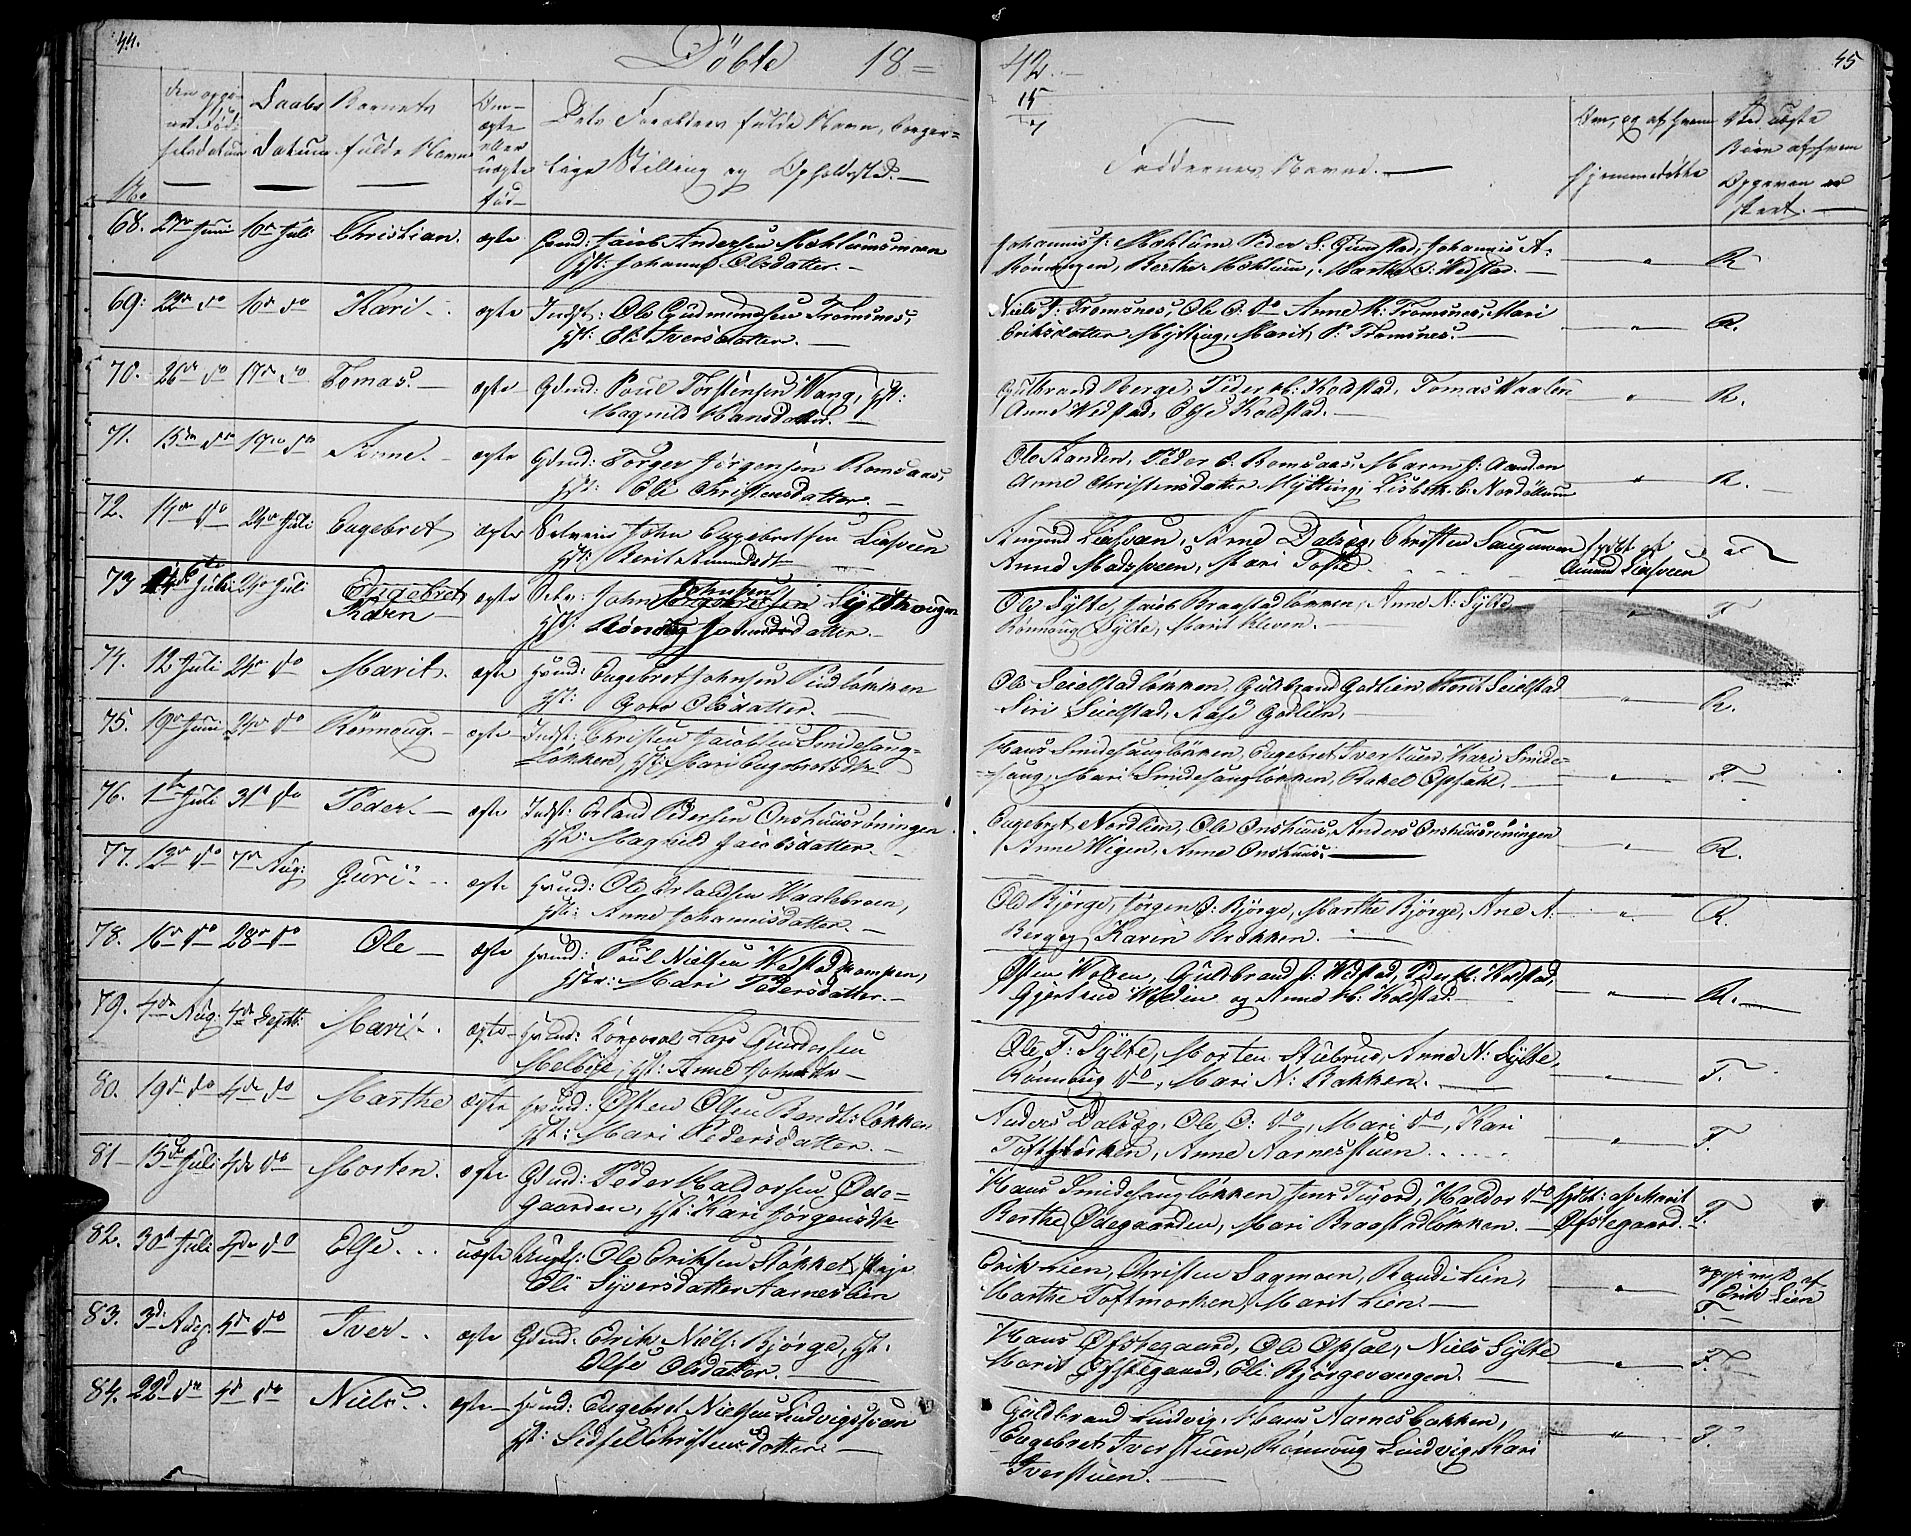 44.
Döbte 18=
42.
45
15
7
No
den opgivne Fødselsdatum
Daabs Datum
Barnets fulde Navn
Om ægte eller uægte fød
Dets Forældres fulde Navn, borgerlige Stilling og Opholdssted.
Faddernes Navne.
Om, og af hvem hjemmedøbte
68. 27de Juni 10de Juli Christian. ægte Gmd: Jacob Andersen Mæhlumsmoen
Hst: Johanne Olsdatter.
Johannes J: Mæhlum, Peder S: Gunstad, Johannes A:
Rønningen, Berthe Mæhlum, Marthe O: Wedstad. R
69. 22de do 10de do Kari ægte Indst: Ole Gudmundsen Tromsnes,
Hst: Eli Iversdatter.
Niels J: Tromsnes, Ole O: do Anne K: Tromsnes, Mari
Eriksdatter Mytting, Marit P: Tromsnes. R.
70. 26de do 17de do Tomas. ægte Gdmd: Poul Torstensen Wang, Hst:
Magnild Hansdatter.
Gulbrand Berge, Peder H: Kolstad, Tomas Waalen
Anne Wedstad, Else Kolstad. R.
71. 15de do 17de do Anne. ægte Gdmd: Torger Jörgensön Romsaas,
Hst: Eli Christensdatter.
Ole Standen, Peder C: Romsaas, Maren J: Aanden
Anne Christensdatter Mytting, Lisbeth C: Nordslett R.
72. 14de do 24de Juli Engebret ægte Selveier John Engebretsen Liesveen
Hst: Berit Amundsdt
Amund Liesveen, Arne Dalseg, Christen Saugmoen hjdbt af
Anne Madsveen, Mari Tofte Amund Liesveen
73 Juli 24de Juli Engebret
Steven ægte Selv: John Johnsen Sylthougen
Hst: Rönnog Johnsdatter.
Ole Sylte, Jacob Braastadløkken, Anne N: Sylte
Rønnoug Sylte, Marit Kleven. F
74. 12 Juli 24de do Marit. ægte Hmd: Engebret Johnsen Rudløkken
Hst: Goro Olsdatter.
Ole Seielstadløkken, Guldbrand Godlien, Marit Seielstad
Siri Seielstad, Aase Godlien, R.
75. 19de Juni 24de do Rønnoug. ægte Indst: Christen Jacobsen Smidesang-
Løkken, Hst: Mari Engebretsdtr
Hans Smidesangløkken, Engebret Iverstuen, Kari Smide-
sang, Mari Smidesangløkken, Rakel Opsahl. F
76. 1ste Juli 31te do Peder ægte Indst: Erland Pedersen Onshuusröningen
Hst: Magnild Jacobsdatter.
Engebret Nordlien, Ole Onshuus, Anders Onshuusröningen
Anne Wigen, Anne Onshuus. R.
77. 12de do 7de Aug: Guri ægte Hmd: Ole Erlandsen Waalebroen,
Hst: Anne Johannisdatter.
Ole Bjørge, Jørgen O: Bjørge, Marthe Bjørge, Ane A:
Berg og Karen Brækken. R.
78. 16de do 28de do Ole ægte Hmd: Poul Nielsen Wedstadkampen,
Hstr: Mari Pedersdatter.
Østen Wolden, Guldbrand J: Wedstad, Peder H: Kolstad,
Gjertrud Wolden og Anne H: Kolstad. R.
79. 4de Aug: 4de Septb: Mari ægte Hmd: Korporal Lars Gundersen
Melbye, Hst: Anne Johnsdtr
Ole T: Sylte, Morten Stubrud, Anne N: Sylte,
Rønnoug do, Mari N: Bakken. F.
80. 19de do 4de do Marthe ægte Hmd: Østen Olsen Løkken
Hst: Mari Pedersdatter.
Anders Dalseg, Ole O: do, Mari do, Kari
Toftemørken, Anne Aarnesstuen F.
81 15de Juli 4de do Morten. ægte Gdmd: Peder Haldorsen Øde-
gaarden, Hst: Kari Jørgensdtr
Hans Smidesangløkken, Jens Tijord, Haldor do hjdbt: af Marit
Berthe Ødegaarden, Mari Braastadløkken. Øfstegaard. F.
82. 30te Juli 4de do Else uægte Ungk: Ole Eriksen Støkket, Pige
Eli Syversdatter Aarneslien
Erik Lien, Christen Sagmoen, Randi Lien,
Marthe Toftmorken, Marit Lien. opgivet af
Erik Lien
F.
83. 3de Aug: 4de do Iver ægte Gdmd: Erik Niels: Bjørge, Hst:
Else Olsdatter.
Hans Øfstegaard, Ole Opsal, Niels Sylte
Marit Øfstegaard, Eli Bjørgevangen. F.
84. 22de do 4de do Niels ægte Hmd: Engebret Nielsen Lindvigsveen
Hst: Sidsel Christensdatter.
Guldbrand Lindvig, Hans Aarnesbakken,
Engebret Iverstuen, Rønnoug Lindvig, Kari
Iverstuen. F.